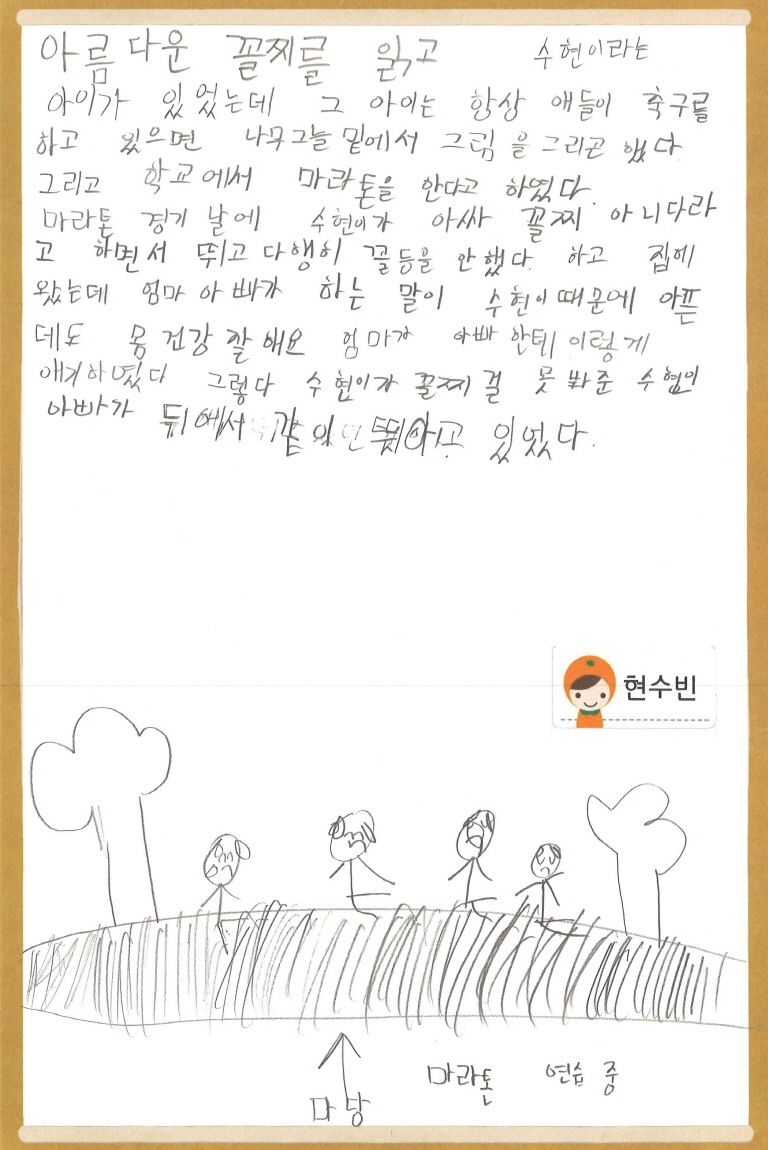 아름다운 꼴찌를 읽고 수현이라는
아이가 있었는데 그 아이는 항상 애들이 축구를
하고 있으면 나무그늘 밑에서 그림을 그리곤 했다
그리고 학교에서 마라톤을 한다고 하였다.
마라톤 경기 날에 수현이가 아싸 꼴찌 아니다라
고 하면서 뛰고 다행히 꼴등을 안했다. 하고 집에
왔는데 엄마 아빠가 하는 말이 수현이 때문에 아픈
데도 몸 건강 잘 해요 엄마가 아빠 한테 이렇게
얘기하였다 그렇다 수현이가 꼴찌 걸 못 봐준 수현이
아빠가 뒤에서 같이 뛰고 있었다.
현수빈
마라톤 연습 중
마당